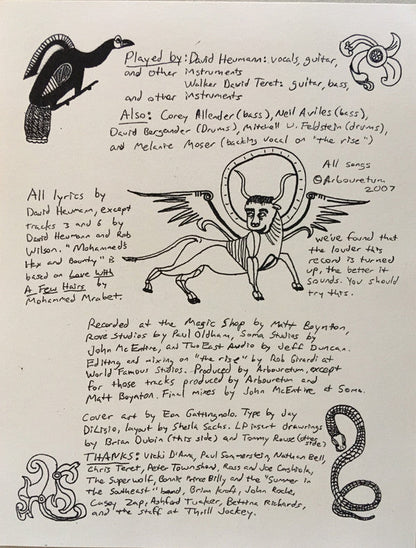 Played by: David Heumann: vocals, guitar,
and other instruments
Walker David Teret: guitar, bass,
and other instruments
Also: Corey Allender (bass), Neil Aviles (bass),
David Bergander (Drums), Mitchell U. Feldstein (drums),
and Melanie Moser (backing vocal on "the rise")
All songs
©Arbouretum
2007
All lyrics by
David Heumann, except
tracks 3 and 6 by
David Heumann and Rob
Wilson. "Mohammed's
Hex and Bounty" is
based on Love With
A Few Hairs by
Mohammed Mrabet.
we've found that
the louder this
record is turned
up, the better it
sounds. You should
try this.
Recorded at the Magic Shop by Matt Boynton,
Rove Studios by Paul Oldham, Soma Studios by
John McEntire, and Two East Audio by Jeff Duncan.
Editing and mixing on "the rise" by Rob Girardi at
World Famous Studios. Produced by Arbouretum, except
for those tracks produced by Arbouretum and
Matt Boynton. Final mixes by John McEntire at Soma.
Cover art by Eon Type by Jay
DiLisio, layout by Sheila Sachs. LP insert drawings
by Brian Dubin (this side) and Tommy Rouse (other side)
THANKS: Vicki Paul Nathan Bell,
Chris Teret, Peter Townshend, Ross and Joe
The Superwolf, Bonnie Prince Billy and the "Summer in
The Southeast" band, Brian John Roche,
Casey Zap, Ashford Tucker, Bettina Richards,
and the staff at Thrill Jockey.